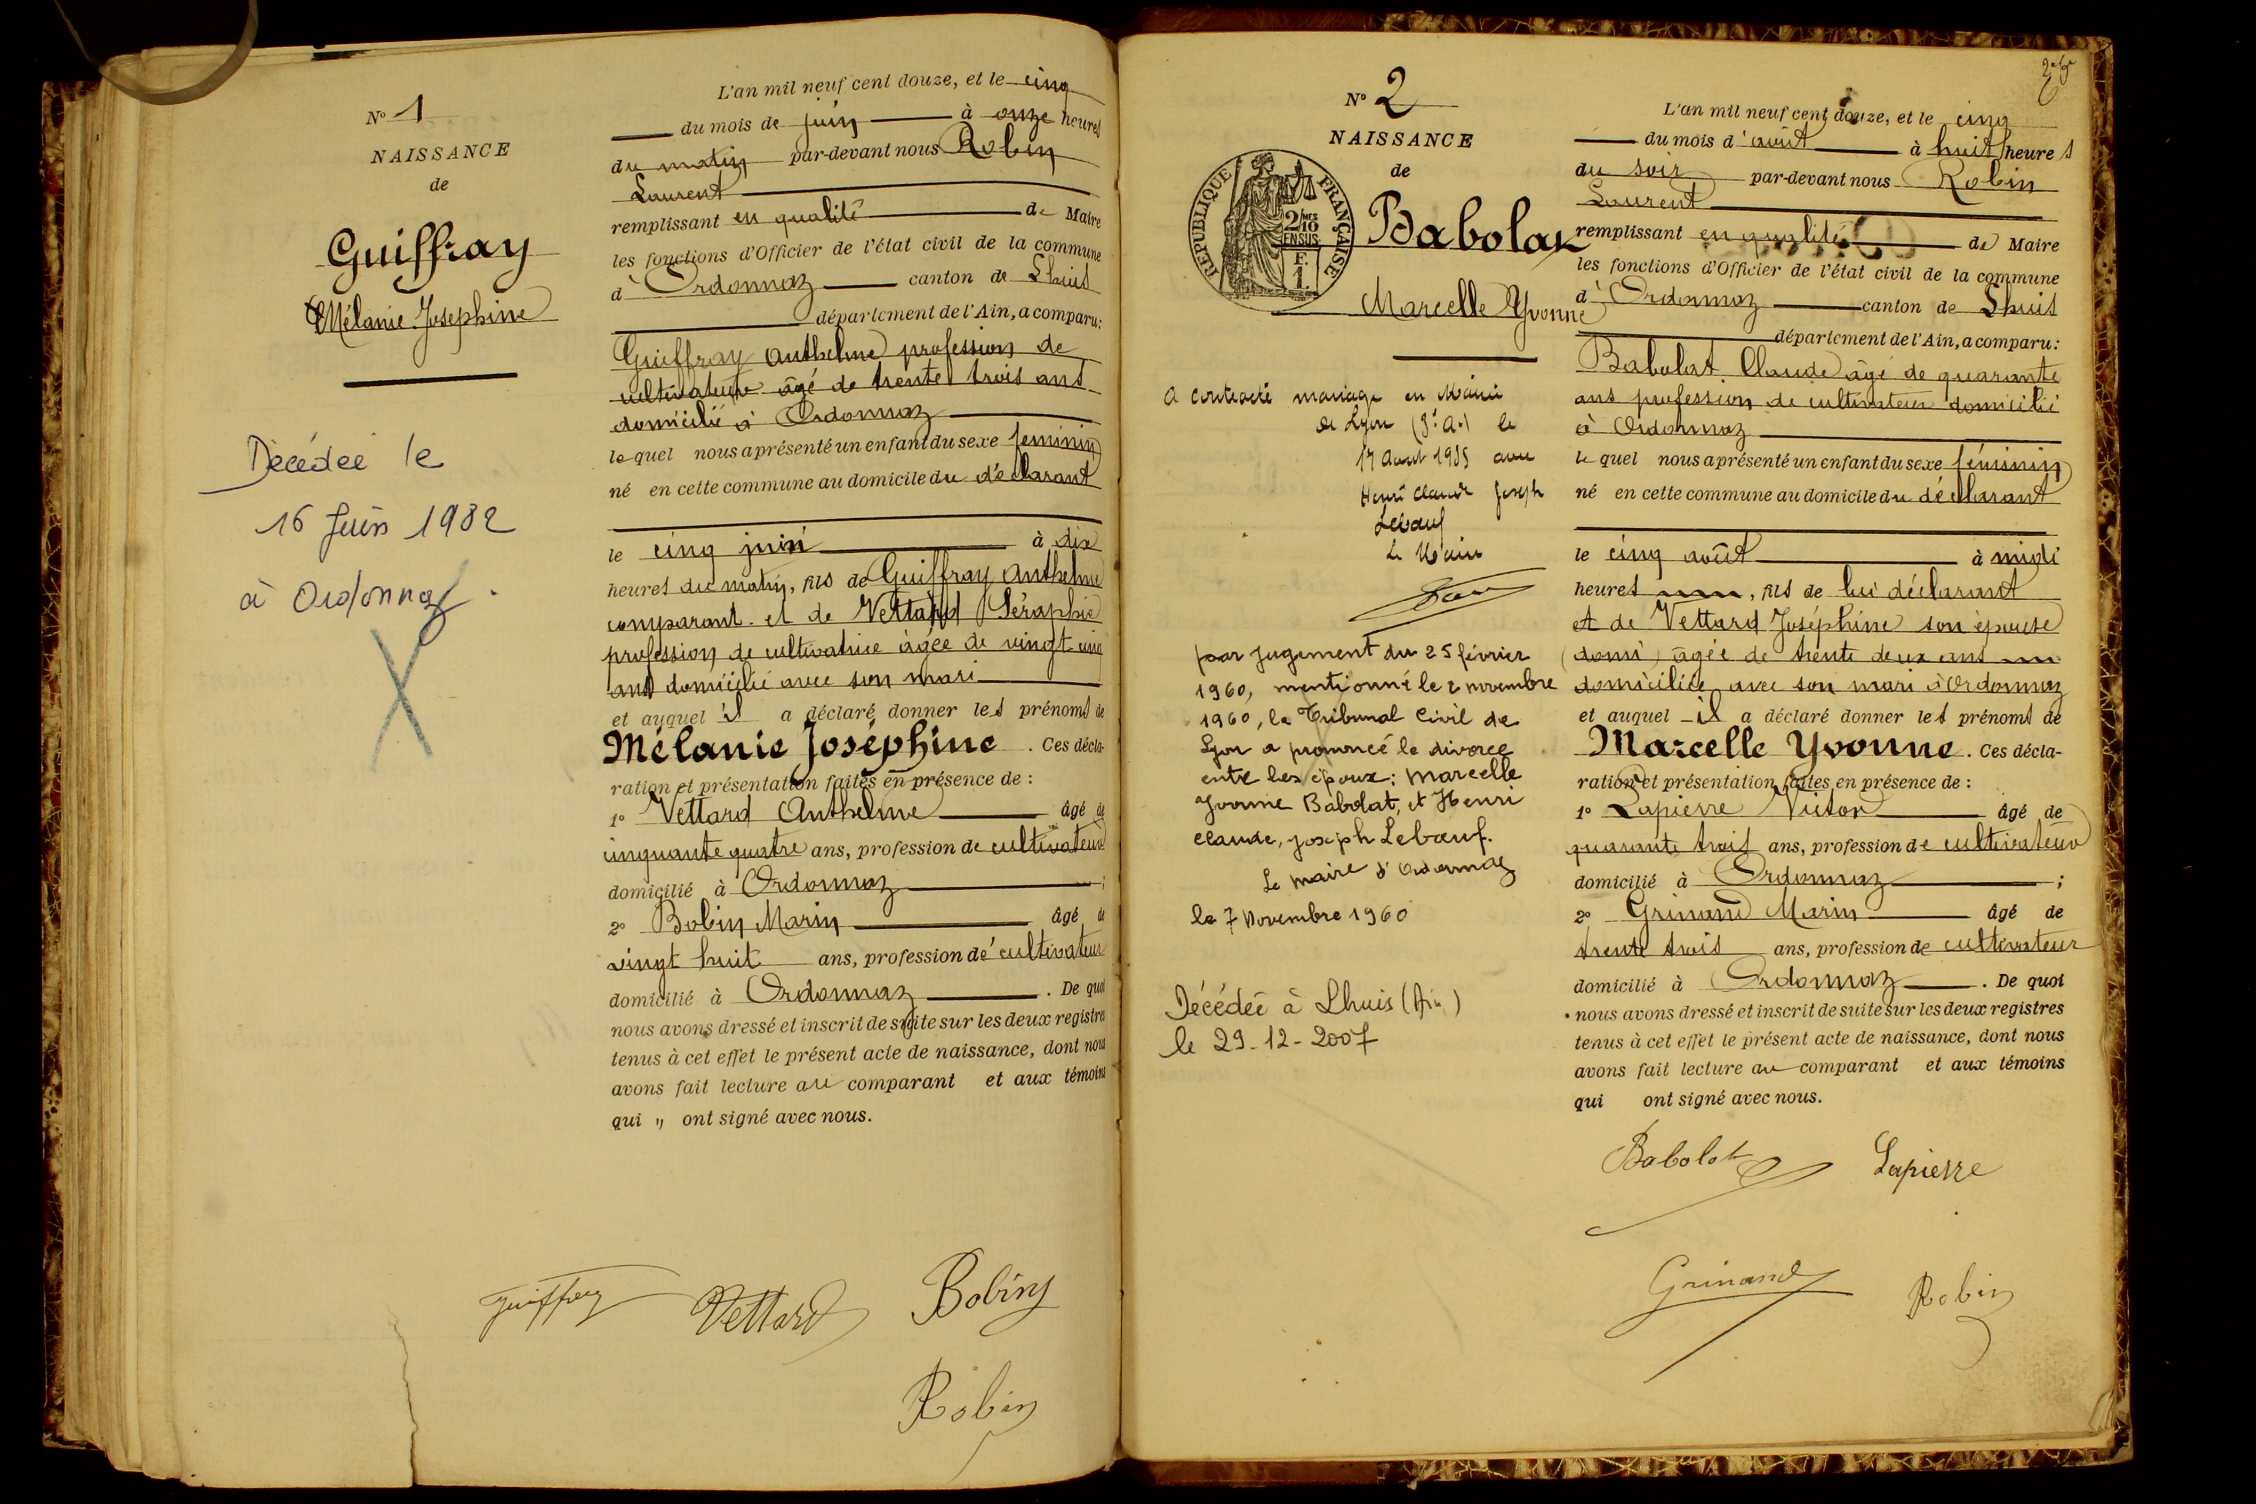 N° 1
NAISSANCE
de
Guiffray
Mélanie Josephine
Décédée le
16 Juin 1982
à Ordonnaz.
L'an mil neuf cent douze, et le cinq
du mois de juin à onze heures
du matin par-devant nous Robin
Laurent
remplissant en qualité de Maire
les fonctions d'Officier de l'état civil de la commune
d' Ordonnaz canton de Lhuis
département de l'Ain, a comparu:
Guiffray Anthelme profession de
cultivateur âgé de trente trois ans
domicilié à Ordonnaz
lequel nous a présenté un enfant du sexe féminin
né en cette commune au domicile du déclarant
le cinq juin à dix
heures du matin, fils de Guiffray Anthelme
comparant et de Vettard Séraphie
profession de cultivatrice âgée de vingt cinq
ans domicilié avec son mari
et auquel il a déclaré donner les prénoms de
Mélanie Joséphine. Ces décla-
ration et présentation faites en présence de :
1° Vettard Anthelme âgé de
cinquante quatre ans, profession de cultivateur
domicilié à Ordonnaz ;
2° Bobin Marin âgé de
vingt huit ans, profession de cultivateur
domicilié à Ordonnaz. De quoi
nous avons dressé et inscrit de suite sur les deux registres
tenus à cet effet le présent acte de naissance, dont nous
avons fait lecture au comparant et aux témoins
qui " ont signé avec nous.
Guiffray Vettard Bobin
Robin
N° 2
NAISSANCE
de
REPUBLIQUE FRANÇAISE
2/10mes
EN SUS
F.
1.
Babolat
Marcelle Yvonne
a contracté mariage en Mairie
de Lyon (3e A.) le
17 Aout 1935 avec
Henri Claude Joseph
Lebœuf
Le Maire
par jugement du 25 février
1960, mentionné le 2 novembre
1960, le Tribunal Civil de
Lyon a prononcé le divorce
entre les époux: Marcelle
Yvonne Babolat, et Henri
Claude, Joseph Lebœuf.
Le maire d'Ordonnaz
le 7 Novembre 1960
Décédée à Lhuis (Ain)
le 29-12-2007
L'an mil neuf cent douze, et le cinq
du mois d'août à huit heures
du soir par-devant nous Robin
Laurent
remplissant en qualité de Maire
les fonctions d'Officier de l'état civil de la commune
d' Ordonnaz canton de Lhuis
département de l'Ain, a comparu:
Babolat Claude âgé de quarante
ans profession de cultivateur domicilié
à Ordonnaz
lequel nous a présenté un enfant du sexe féminin
né en cette commune au domicile du déclarant
le cinq août à midi
heures, fils de lui déclarant
et de Vettard Joséphine son épouse
(domi) âgée de trente deux ans
domiciliée avec son mari à Ordonnaz
et auquel il a déclaré donner les prénoms de
Marcelle Yvonne. Ces décla-
ration et présentation faites en présence de :
1° Lapierre Victor âgé de
quarante trois ans, profession de cultivateur
domicilié à Ordonnaz ;
2° Grinand Marin âgé de
trente trois ans, profession de cultivateur
domicilié à Ordonnaz. De quoi
nous avons dressé et inscrit de suite sur les deux registres
tenus à cet effet le présent acte de naissance, dont nous
avons fait lecture au comparant et aux témoins
qui ont signé avec nous.
Babolat Lapierre
Grinand Robin